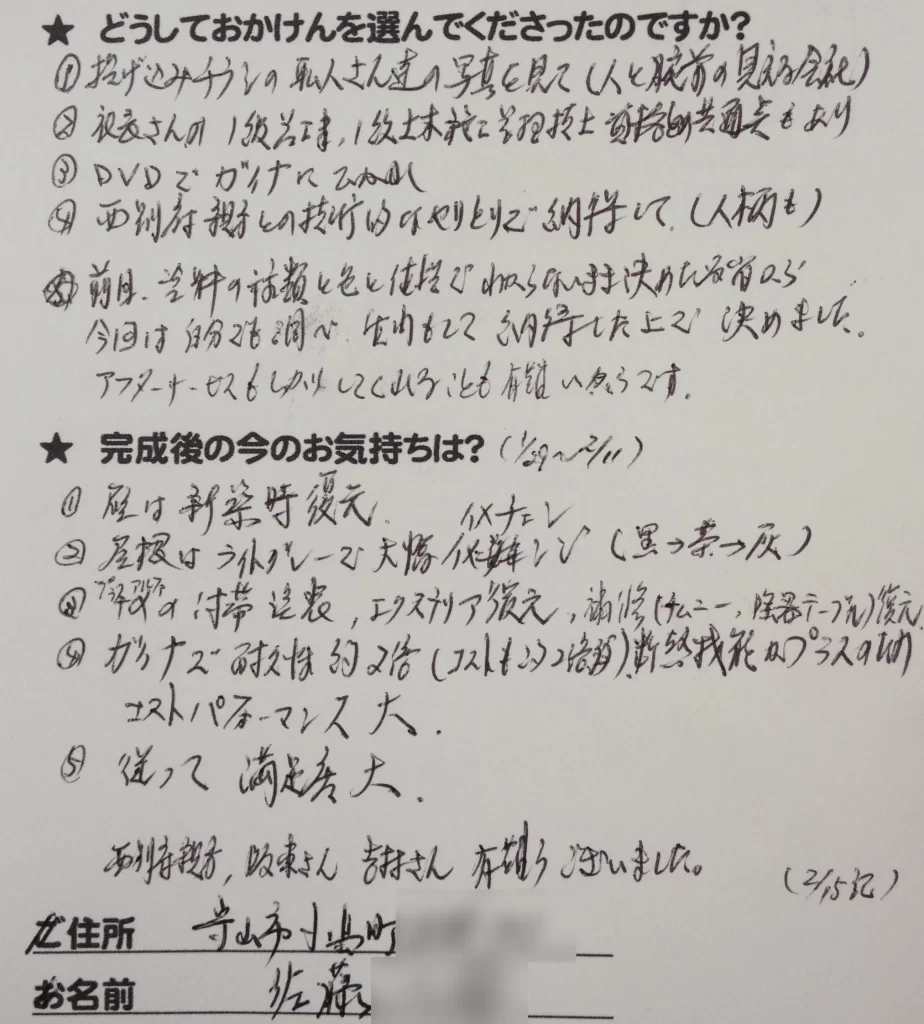 ★ どうしておかけんを選んでくださったのですか?
① 投げ込みチラシの職人さん達の写真を見て(人と腕前の見える会社)
② 秋衣さんの 1級 , 1級土木施工管理技士 資格的共通点もあり
③ DVDでガイナに
④ 西別府親子との技術的なやりとりで納得して.(人柄も)
⑤ 前回.塗料の種類と色と値段で わからないまま決めた反省から
今回は自分でも調べ. 納得した上で 決めました.
アフターサービスもしっかりしてくれることも有難いからです.
★ 完成後の今のお気持ちは? (1/29~2/11)
① 壁は新築時復元.
② 屋根はライトグレーで大幅イメチェン (黒→茶→灰)
③ の付帯塗装,エクステリア復元,補修(チムニー, 陸器テープ)復元.
④ ガイナで耐久性約2倍(コストも約2倍弱).断熱機能がプラスの為
コストパフォーマンス大.
⑤ 従って 満足度大.
西別府親子,坂東さん 吉村さん 有難うございました。
(2/15記)
ご住所 守山市小島町
お名前 佐藤